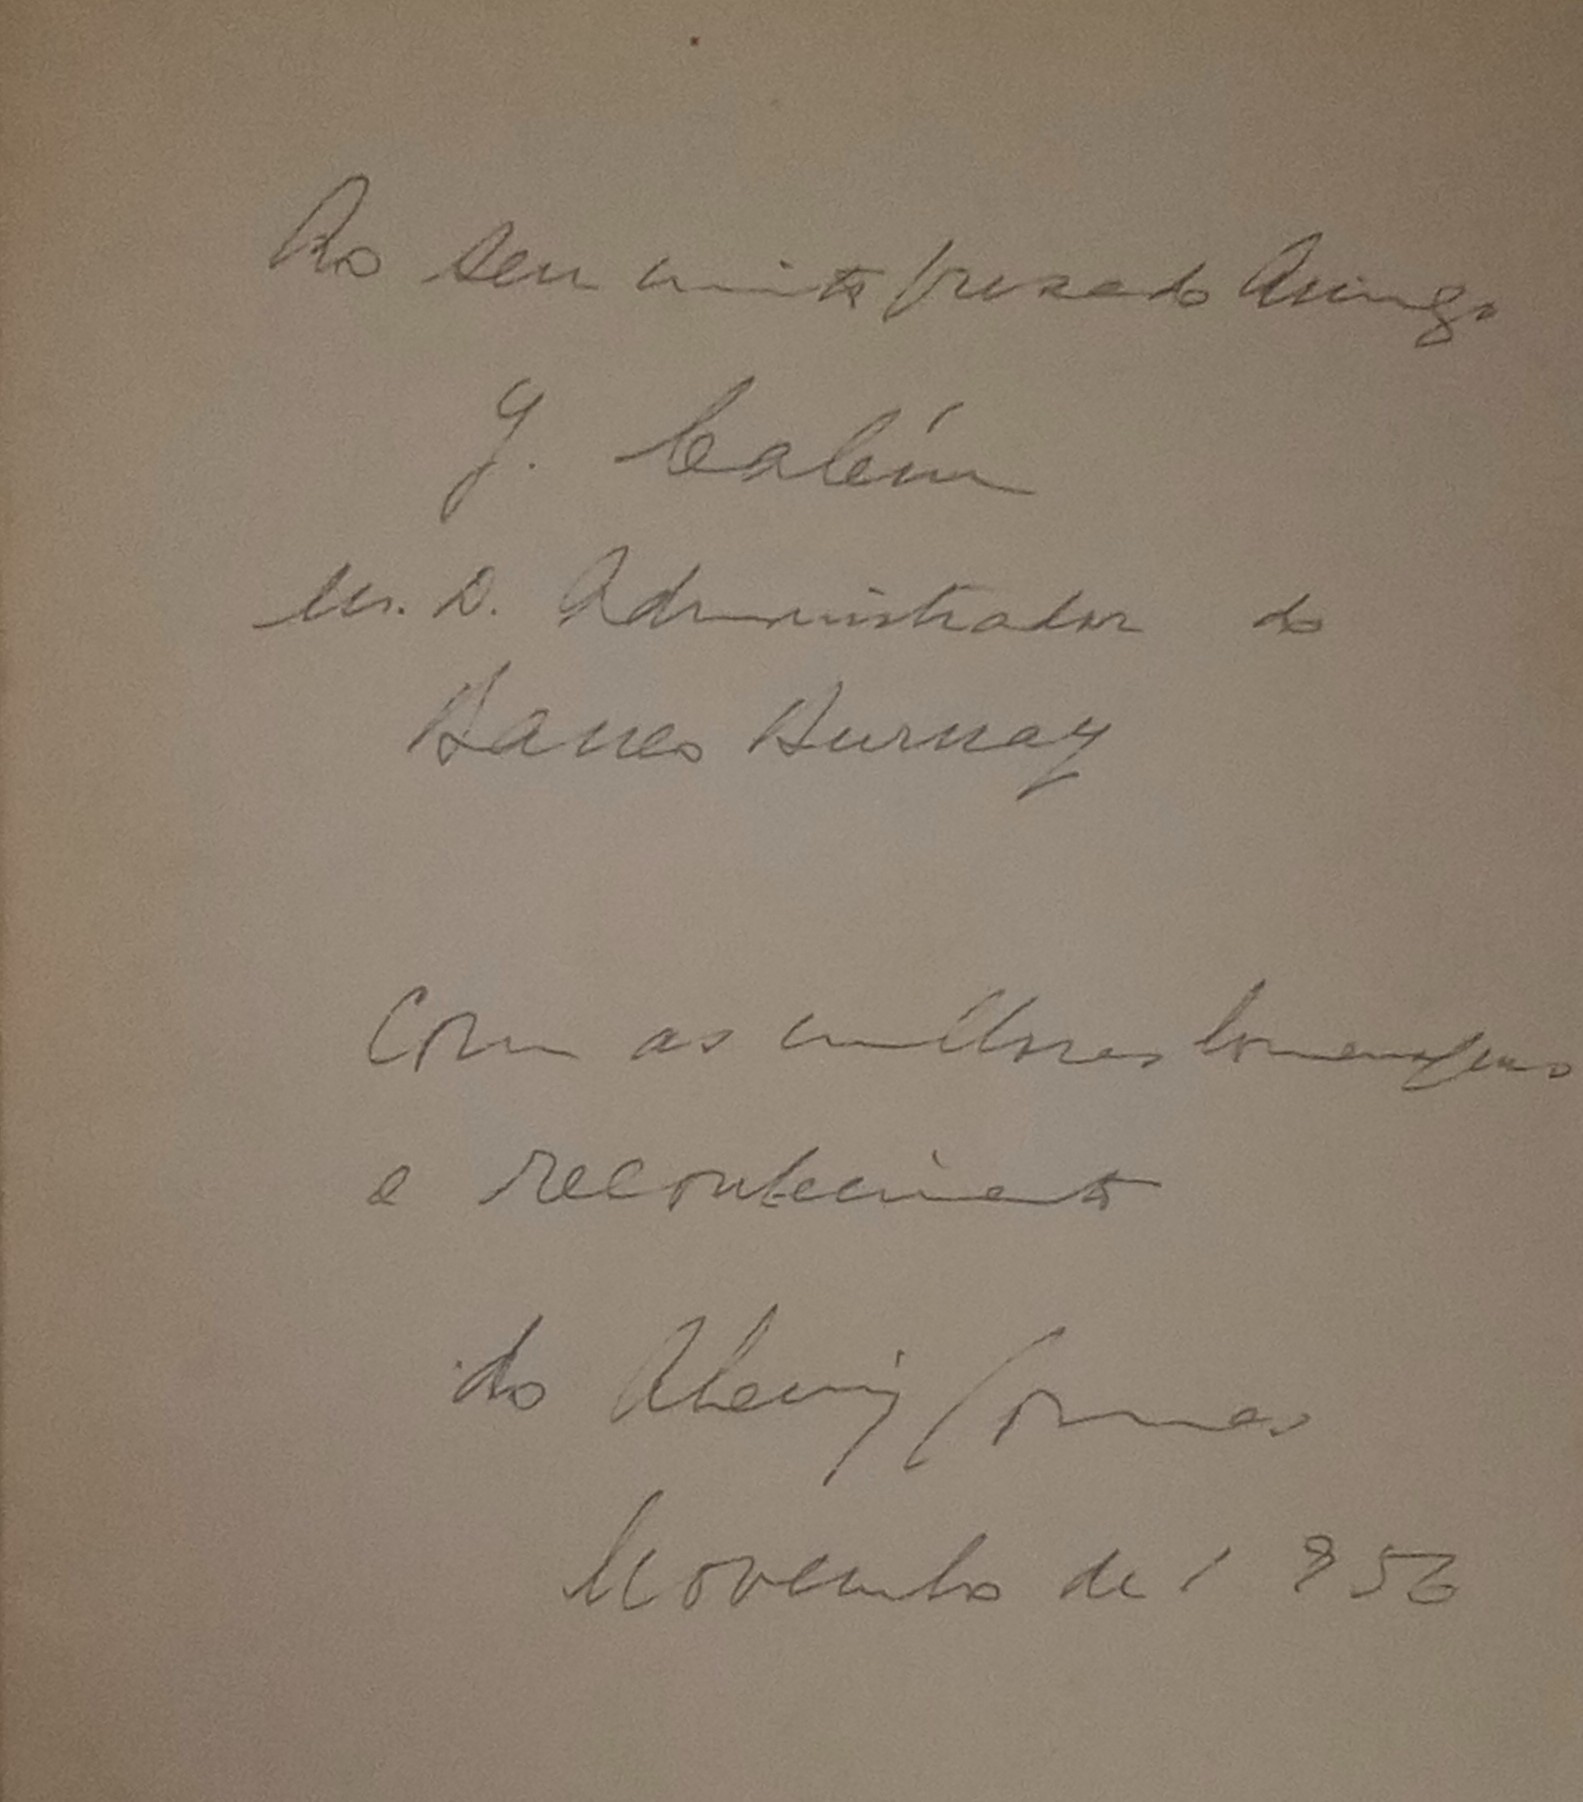 Ao seu muito presado Amigo
J. Calém
M. D. Administrador do
Banco Burnay
Com as melhores homenagens
e reconhecimento
do Gomes
Novembro de 1956